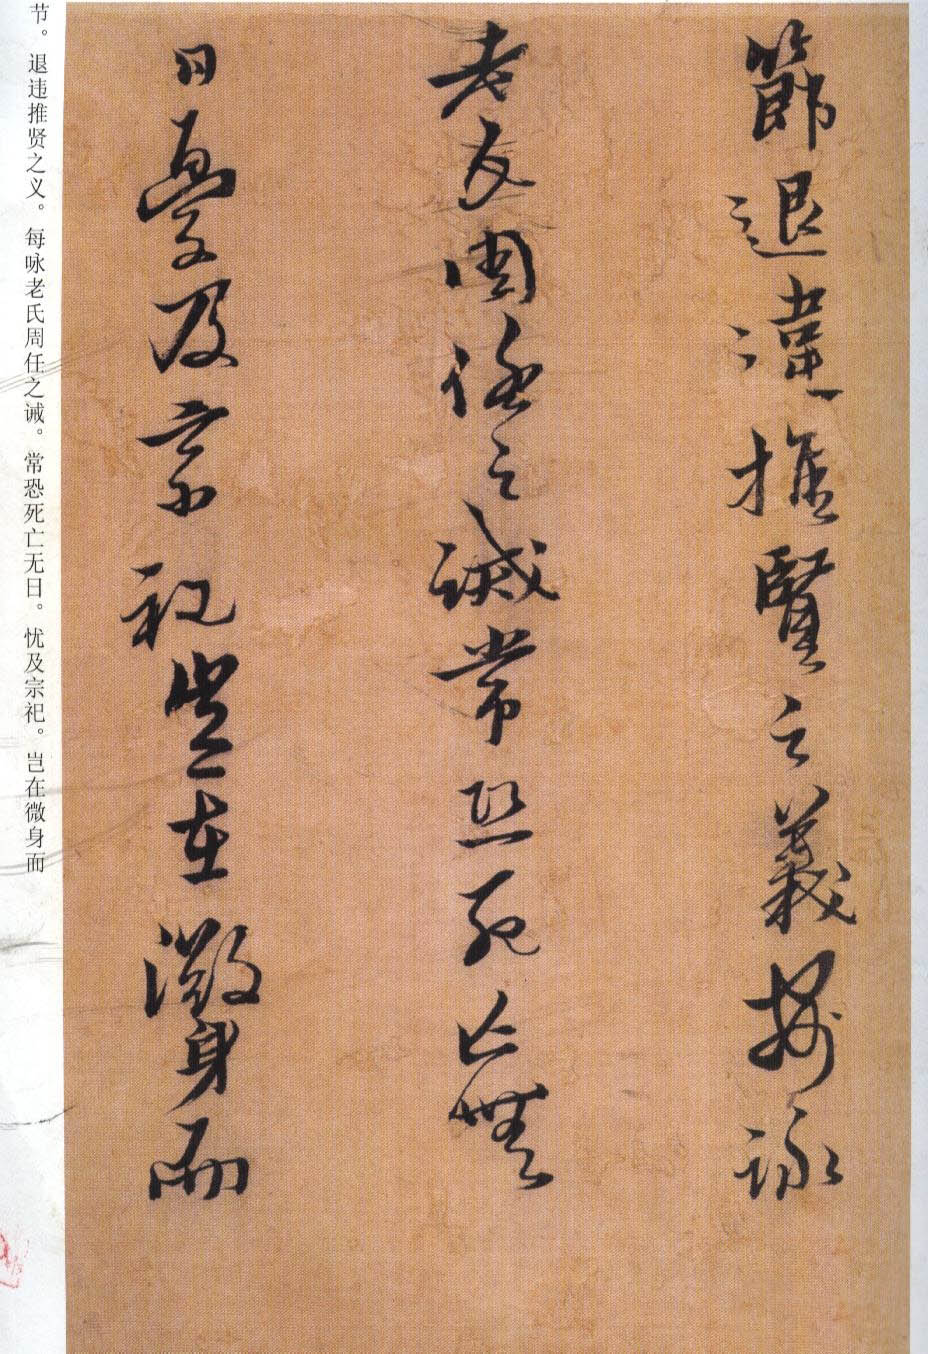 節退違推賢之義每詠
老氏周任之誡常恐死亡無
日憂及宗祀豈在微身而
节。退违推贤之义。每咏老氏周任之诫。常恐死亡无日。忧及宗祀。岂在微身而